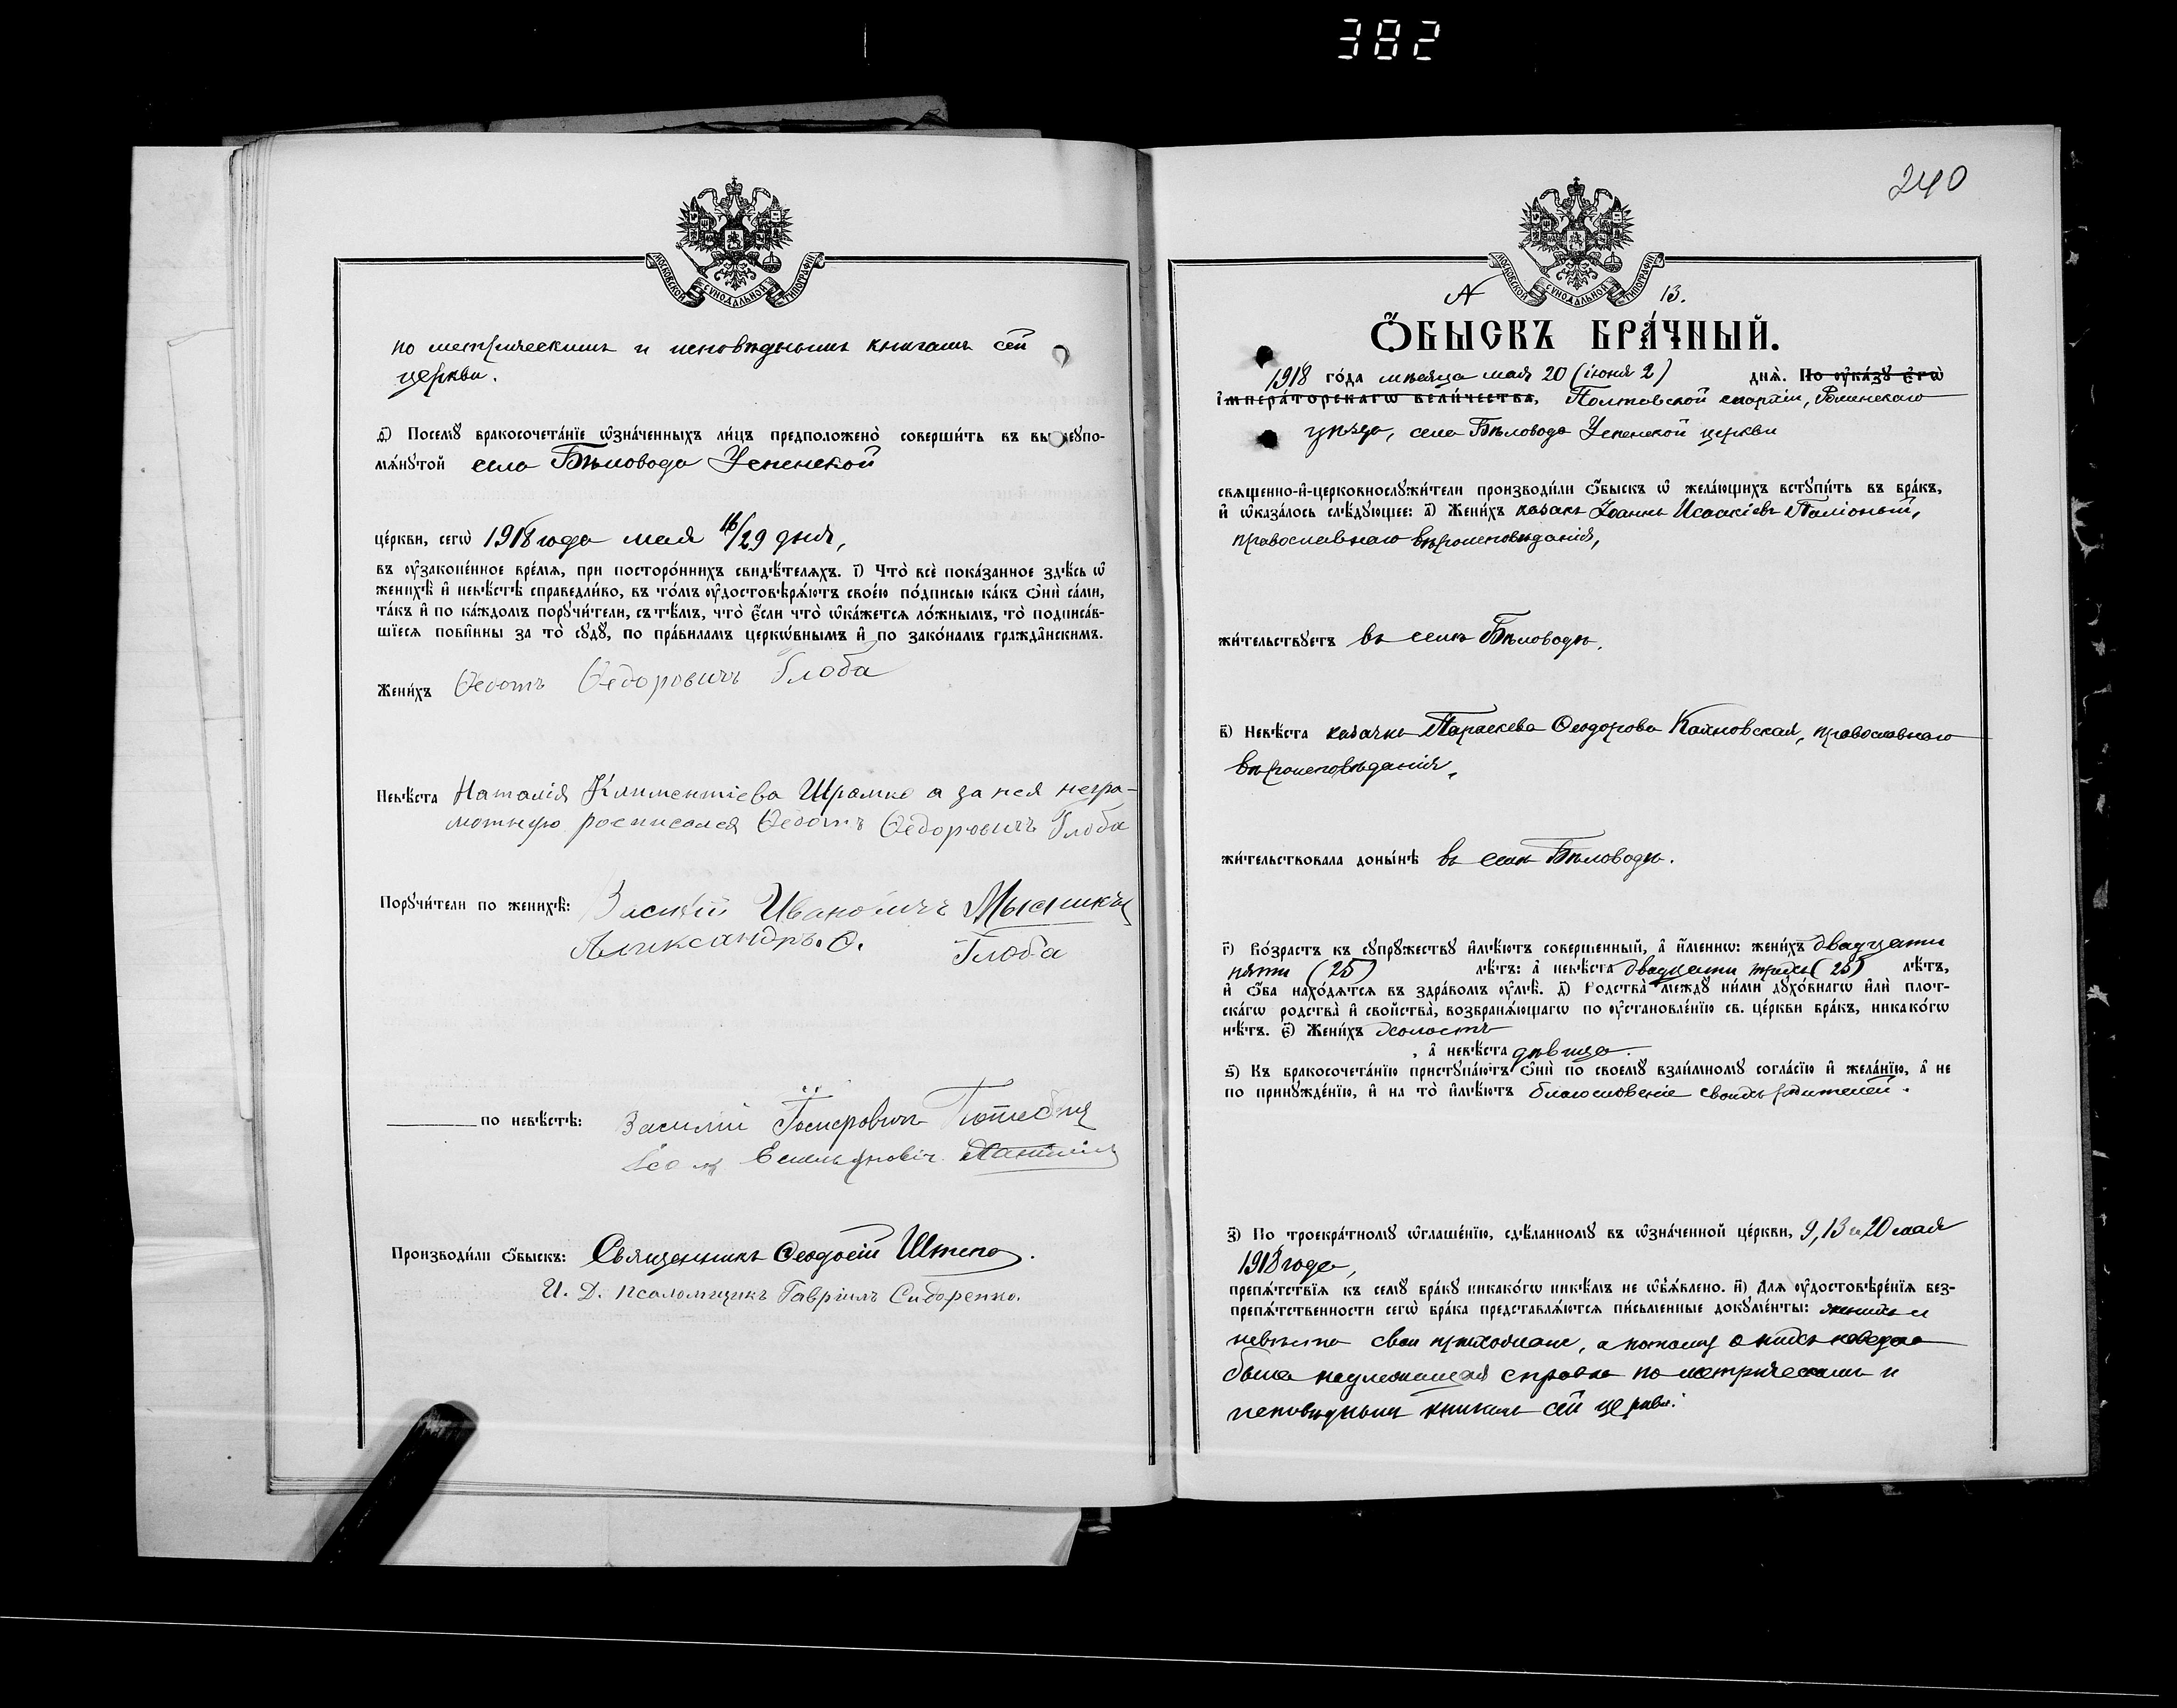 382
МОСКОВСКОЙ СУНОДАЛЬНОЙ ТИПОГРАФІИ
по метрическимъ и исповѣднымъ книгамъ сей
церкви.
ѳ҃) Посемꙋ̀ бракосочета́нїе ѡ҆зна́ченныхъ ли́цъ предположено̀ соверши́ть въ вы еꙋпо-
мѧ́нꙋтой села Бѣловода Успенской
це́ркви, сегѡ̀ 1918 года мая 16/29 дня,
въ ᲂу҆зако́ненное вре́мѧ, при посторо́ннихъ свидѣ́телѧхъ. і҃) Что̀ всѐ пока́занное здѣ́сь ѡ҆
женихѣ̀ и҆ невѣ́стѣ справедли́во, въ то́мъ ᲂу҆достовѣрѧ́ютъ свое́ю по́дписью ка́къ ѻ҆нѝ са́ми,
та́къ и҆ по ка́ждомъ порꙋчи́тели, съ тѣ́мъ, что̀ є҆́сли что̀ ѡ҆ка́жетсѧ ло́жнымъ, то̀ подписа́в-
шїесѧ пови́нны за то̀ сꙋдꙋ̀, по пра́виламъ церкѡ́внымъ и҆ по зако́намъ гражда́нскимъ.
Жени́хъ Ѳедотъ Ѳедоровичъ Глоба
Невѣ́ста Наталія Климентіева Шрамко а за нея негра-
мотную росписался Ѳедотъ Ѳедоровичъ Глоба
Порꙋчи́тели по женихѣ̀: Василій Ивановичъ Мысникъ
Александръ. Ѳ. Глоба
по невѣ́стѣ: Василій
Емельяновіч
Производи́ли ѻ҆́быскъ: Священникъ Ѳеодосій Штепа.
И. Д. псаломщикъ Гавріилъ Сидоренко.
240
МОСКОВСКОЙ СУНОДАЛЬНОЙ ТИПОГРАФІИ
№ 13.
Ѻ҆́БЫСКЪ БРА́ЧНЫЙ.
1918 го́да мѣсяца мая 20 (іюня 2) днѧ̀. По ᲂу҆ка́зꙋ є҆гѡ̀
і҆мпера́торскагѡ вели́чества, Полтавской епархіи, Роменскаго
уѣзда, села Бѣловода Успенской церкви
свѧще́нно-и҆-церковнослꙋжи́тели производи́ли ѻ҆́быскъ ѡ҆ жела́ющихъ встꙋпи́ть въ бра́къ,
и҆ ѡ҆каза́лось слѣ́дꙋющее: а҃) Жени́хъ казакъ Іоаннъ Исаакіевъ Паліоный,
православнаго вѣроисповѣданія,
жи́тельствꙋетъ въ селѣ Бѣловодѣ.
в҃) Невѣ́ста казачка Параскева Ѳеодорова Кахновская, православнаго
вѣроисповѣданія,
жи́тельствовала доны́нѣ въ селѣ Бѣловодѣ.
г҃) Во́зрастъ къ сꙋпрꙋ́жествꙋ и҆мѣ́ютъ соверше́нный, а҆ и҆́меннѡ: жени́хъ двадцати
пяти (25) лѣ́тъ: а҆ невѣ́ста двадцати трехъ (23) лѣ́тъ,
и҆ ѻ҆́ба нахо́дѧтсѧ въ здра́вомъ ᲂу҆мѣ̀. д҃) Родства̀ междꙋ̀ ни́ми дꙋхо́внагѡ и҆лѝ плот-
ска́гѡ родства̀ и҆ свойства̀, возбранѧ́ющагѡ по ᲂу҆становле́нїю св. це́ркви бра́къ, никако́гѡ
нѣ́тъ. є҃) Жени́хъ холостъ
, а҆ невѣ́ста дѣвица.
ѕ҃) Къ бракосочета́нїю пристꙋпа́ютъ ѻ҆нѝ по своемꙋ̀ взаи́мномꙋ согла́сїю и҆ жела́нїю, а҆ не
по принꙋжде́нїю, и҆ на то̀ и҆мѣ́ютъ благословеніе своихъ родителей.
з҃) По троекра́тномꙋ ѡ҆глаше́нїю, сдѣ́ланномꙋ въ ѡ҆зна́ченной це́ркви, 9, 13 и 20 мая
1918 года,
препѧ́тствїѧ къ семꙋ̀ бра́кꙋ никако́гѡ никѣ́мъ не ѡ҆б̾ѧ́влено. и҃) Длѧ ᲂу҆достовѣре́нїѧ без-
препѧ́тственности сегѡ̀ бра́ка представлѧ́ютсѧ пи́сьменные докꙋме́нты: женихъ и
невѣста свои прихожане, а потому о нихъ наведена
была надлежащая справка по метрическимъ и
исповѣднымъ книгамъ сей церкви.